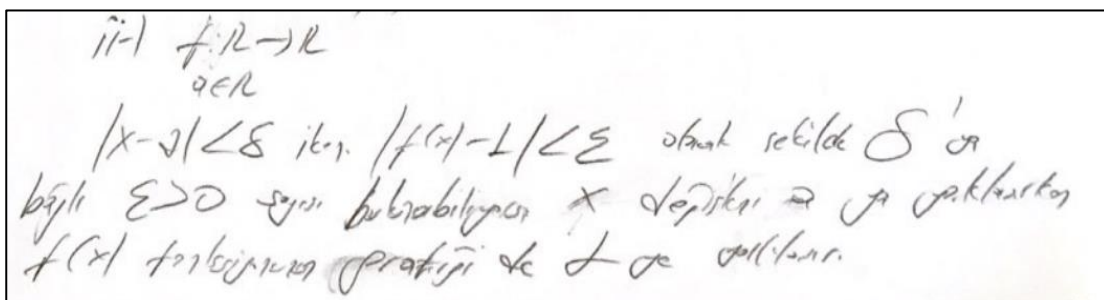 ii-) f: R→R
a∈R
|x-a|<δ iken |f(x)-L|<ε olacak şekilde δ'ya
bağlı ε>0 sayısı bulunabiliyorsa x değişkeni a ya yaklaşırken
f(x) fonksiyonunun grafiği de L ye yaklaşır.